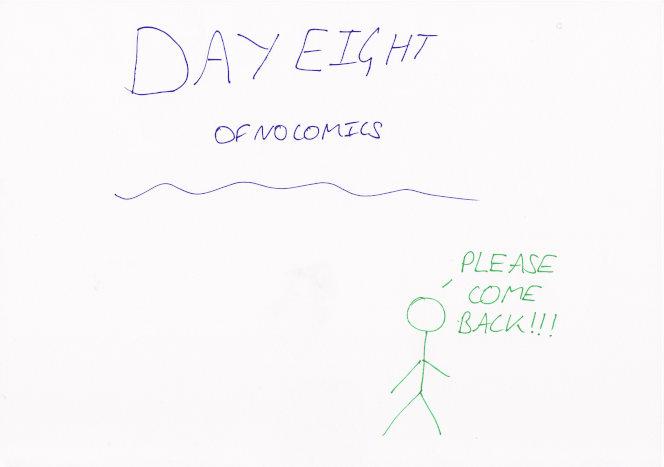 DAY EIGHT
OF NO COMICS
PLEASE
COME
BACK!!!